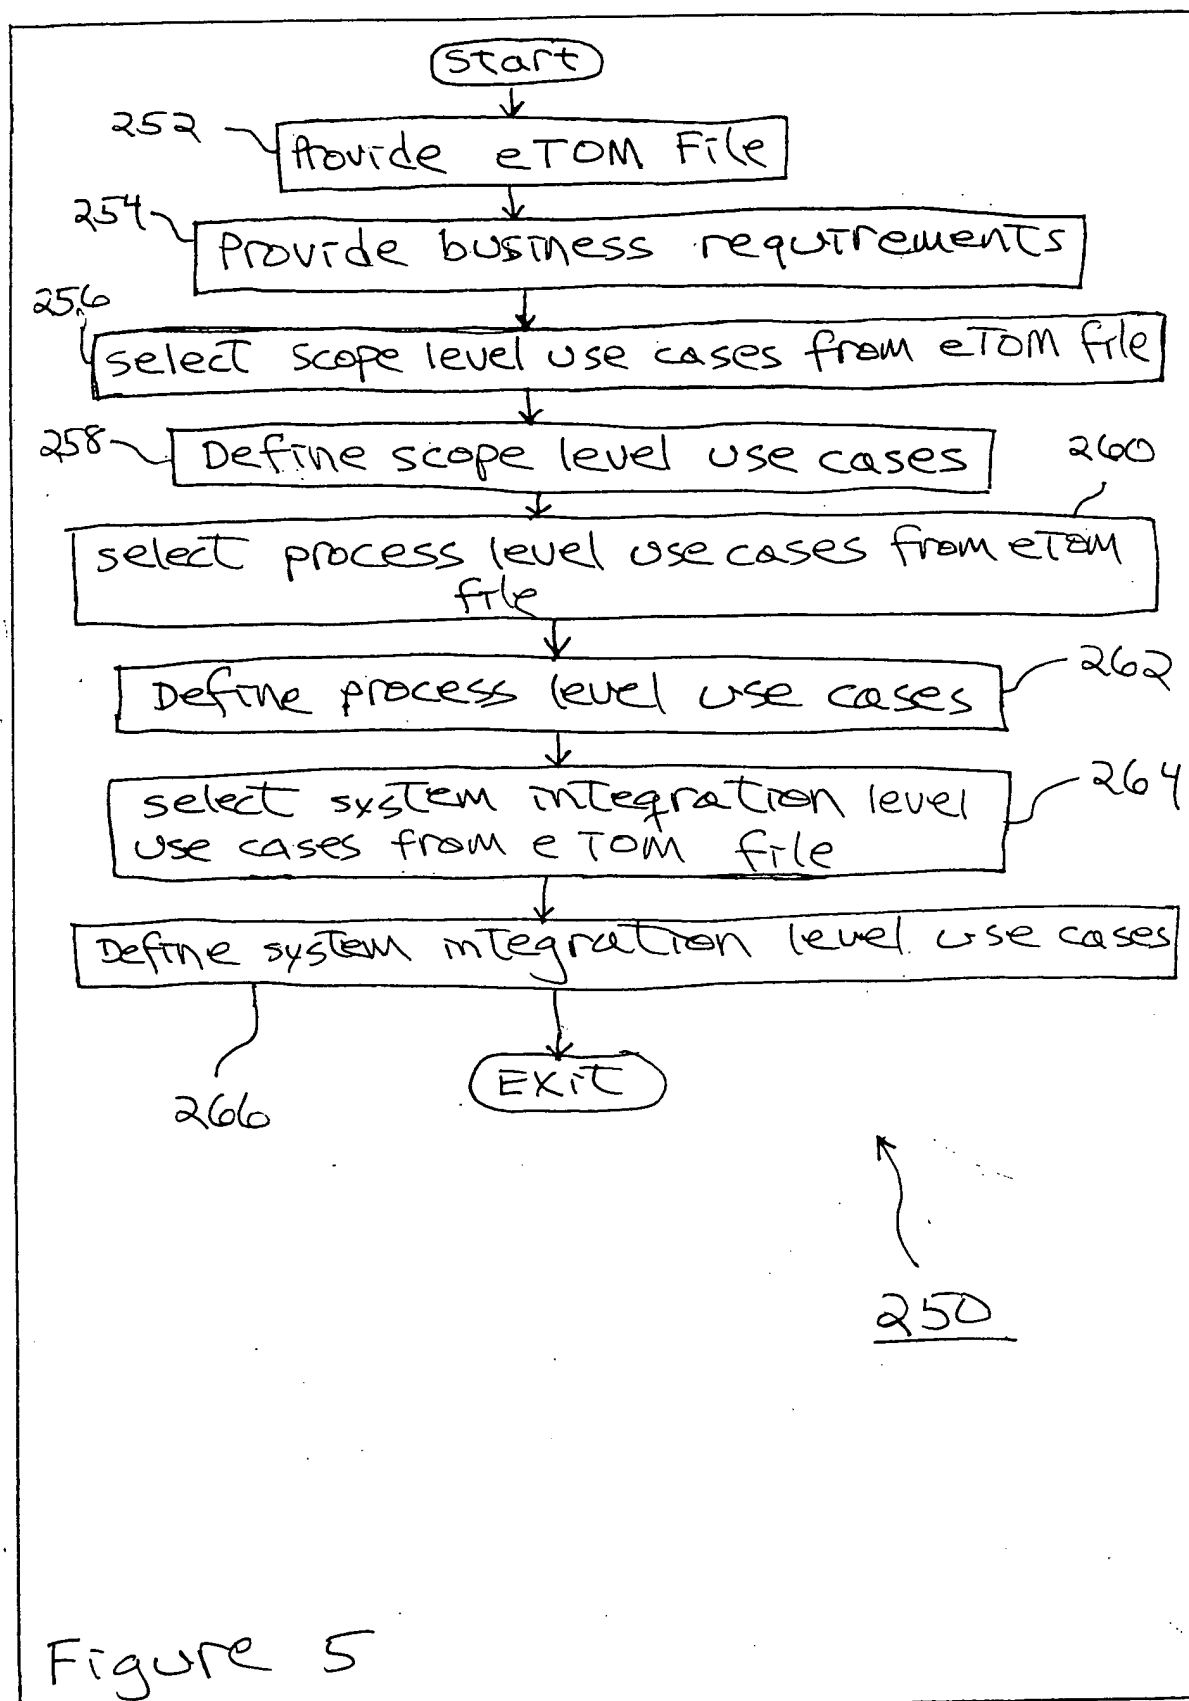 Start
252
Provide eTOM File
254
Provide business requirements
256
select scope level use cases from eTOM file
258
Define scope level use cases
260
select process level use cases from eTOM
file
Define process level use cases
262
select system integration level
use cases from eTOM file
264
Define system integration level use cases
266
EXIT
250
Figure 5